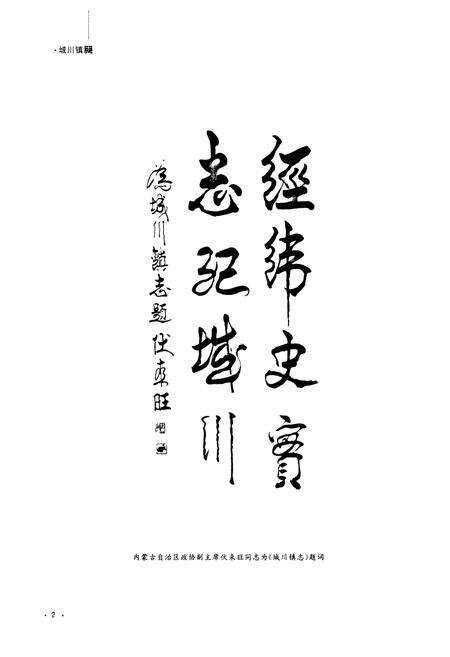 ·城川镇志
經緯史實
志记城川
為城川鎮志題 伏來旺
内蒙古自治区政协副主席伏来旺同志为《城川镇志》题词
·2·